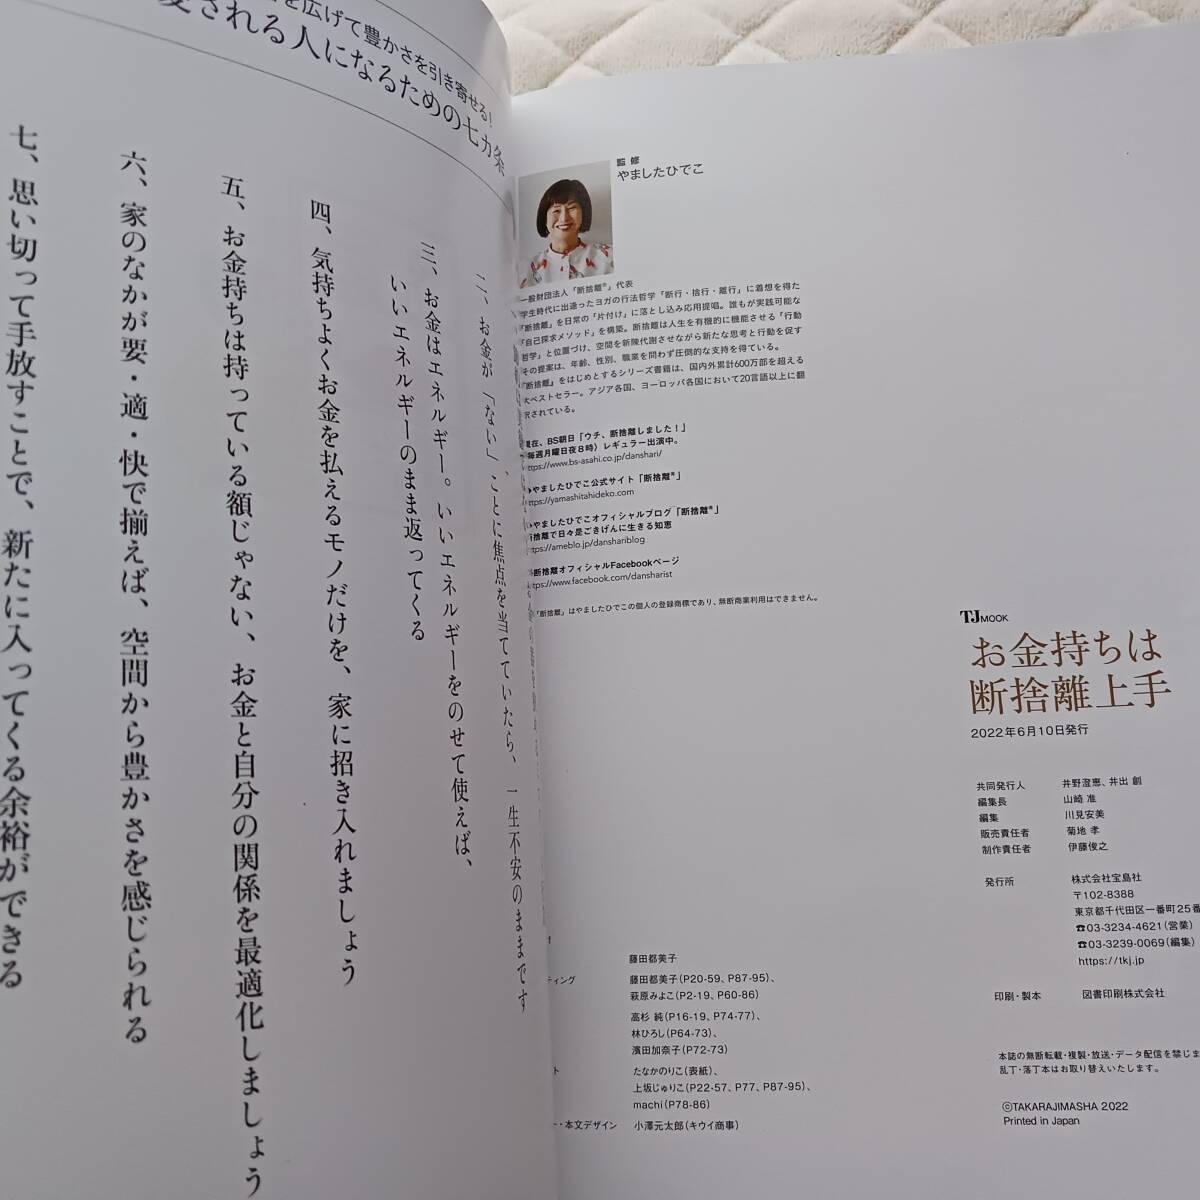 を広げて豊かさを引き寄せる!
される人になるための七カ条
二、お金が「ない」ことに焦点を当てていたら、一生不安のままです
三、お金はエネルギー。いいエネルギーをのせて使えば、
いいエネルギーのまま返ってくる
四、気持ちよくお金を払えるモノだけを、家に招き入れましょう
五、お金持ちは持っている額じゃない、お金と自分の関係を最適化しましょう
六、家のなかが要・適・快で揃えば、空間から豊かさを感じられる
七、思い切って手放すことで、新たに入ってくる余裕ができる
監修
やましたひでこ
一般財団法人「断捨離®」代表
学生時代に出逢ったヨガの行法哲学「断行・捨行・離行」に着想を得た
「断捨離」を日常の「片付け」に落とし込み応用提唱。誰もが実践可能な
「自己探求メソッド」を構築。断捨離は人生を有機的に機能させる「行動
哲学」と位置づけ、空間を新陳代謝させながら新たな思考と行動を促す
その提案は、年齢、性別、職業を問わず圧倒的な支持を得ている。
『断捨離』をはじめとするシリーズ書籍は、国内外累計600万部を超える
大ベストセラー。アジア各国、ヨーロッパ各国において20言語以上に翻
訳されている。
現在、BS朝日「ウチ、断捨離しました!」
(毎週月曜日夜8時)レギュラー出演中。
https://www.bs-asahi.co.jp/danshari/
やましたひでこ公式サイト「断捨離®」
https://yamashitahideko.com
やましたひでこオフィシャルブログ「断捨離®」
断捨離で日々是ごきげんに生きる知恵
https://ameblo.jp/danshariblog
断捨離オフィシャルFacebookページ
https://www.facebook.com/dansharist
「断捨離」はやましたひでこの個人の登録商標であり、無断商業利用はできません。
TJ MOOK
お金持ちは
断捨離上手
2022年6月10日発行
共同発行人 井野澄恵、井出 創
編集長 山崎 准
編集 川見安美
販売責任者 菊地 孝
制作責任者 伊藤俊之
発行所 株式会社宝島社
〒102-8388
東京都千代田区一番町25番
☎03-3234-4621(営業)
☎03-3239-0069(編集)
https://tkj.jp
印刷・製本 図書印刷株式会社
本誌の無断転載・複製・放送・データ配信を禁じま
乱丁・落丁本はお取り替えいたします。
©TAKARAJIMASHA 2022
Printed in Japan
藤田都美子
ティング 藤田都美子(P20-59、P87-95)、
萩原みよこ(P2-19、P60-86)
高杉 純(P16-19、P74-77)、
林ひろし(P64-73)、
濱田加奈子(P72-73)
ト たなかのりこ(表紙)、
上坂じゅりこ(P22-57、P77、P87-95)、
machi(P78-86)
・本文デザイン 小澤元太郎(キウイ商事)